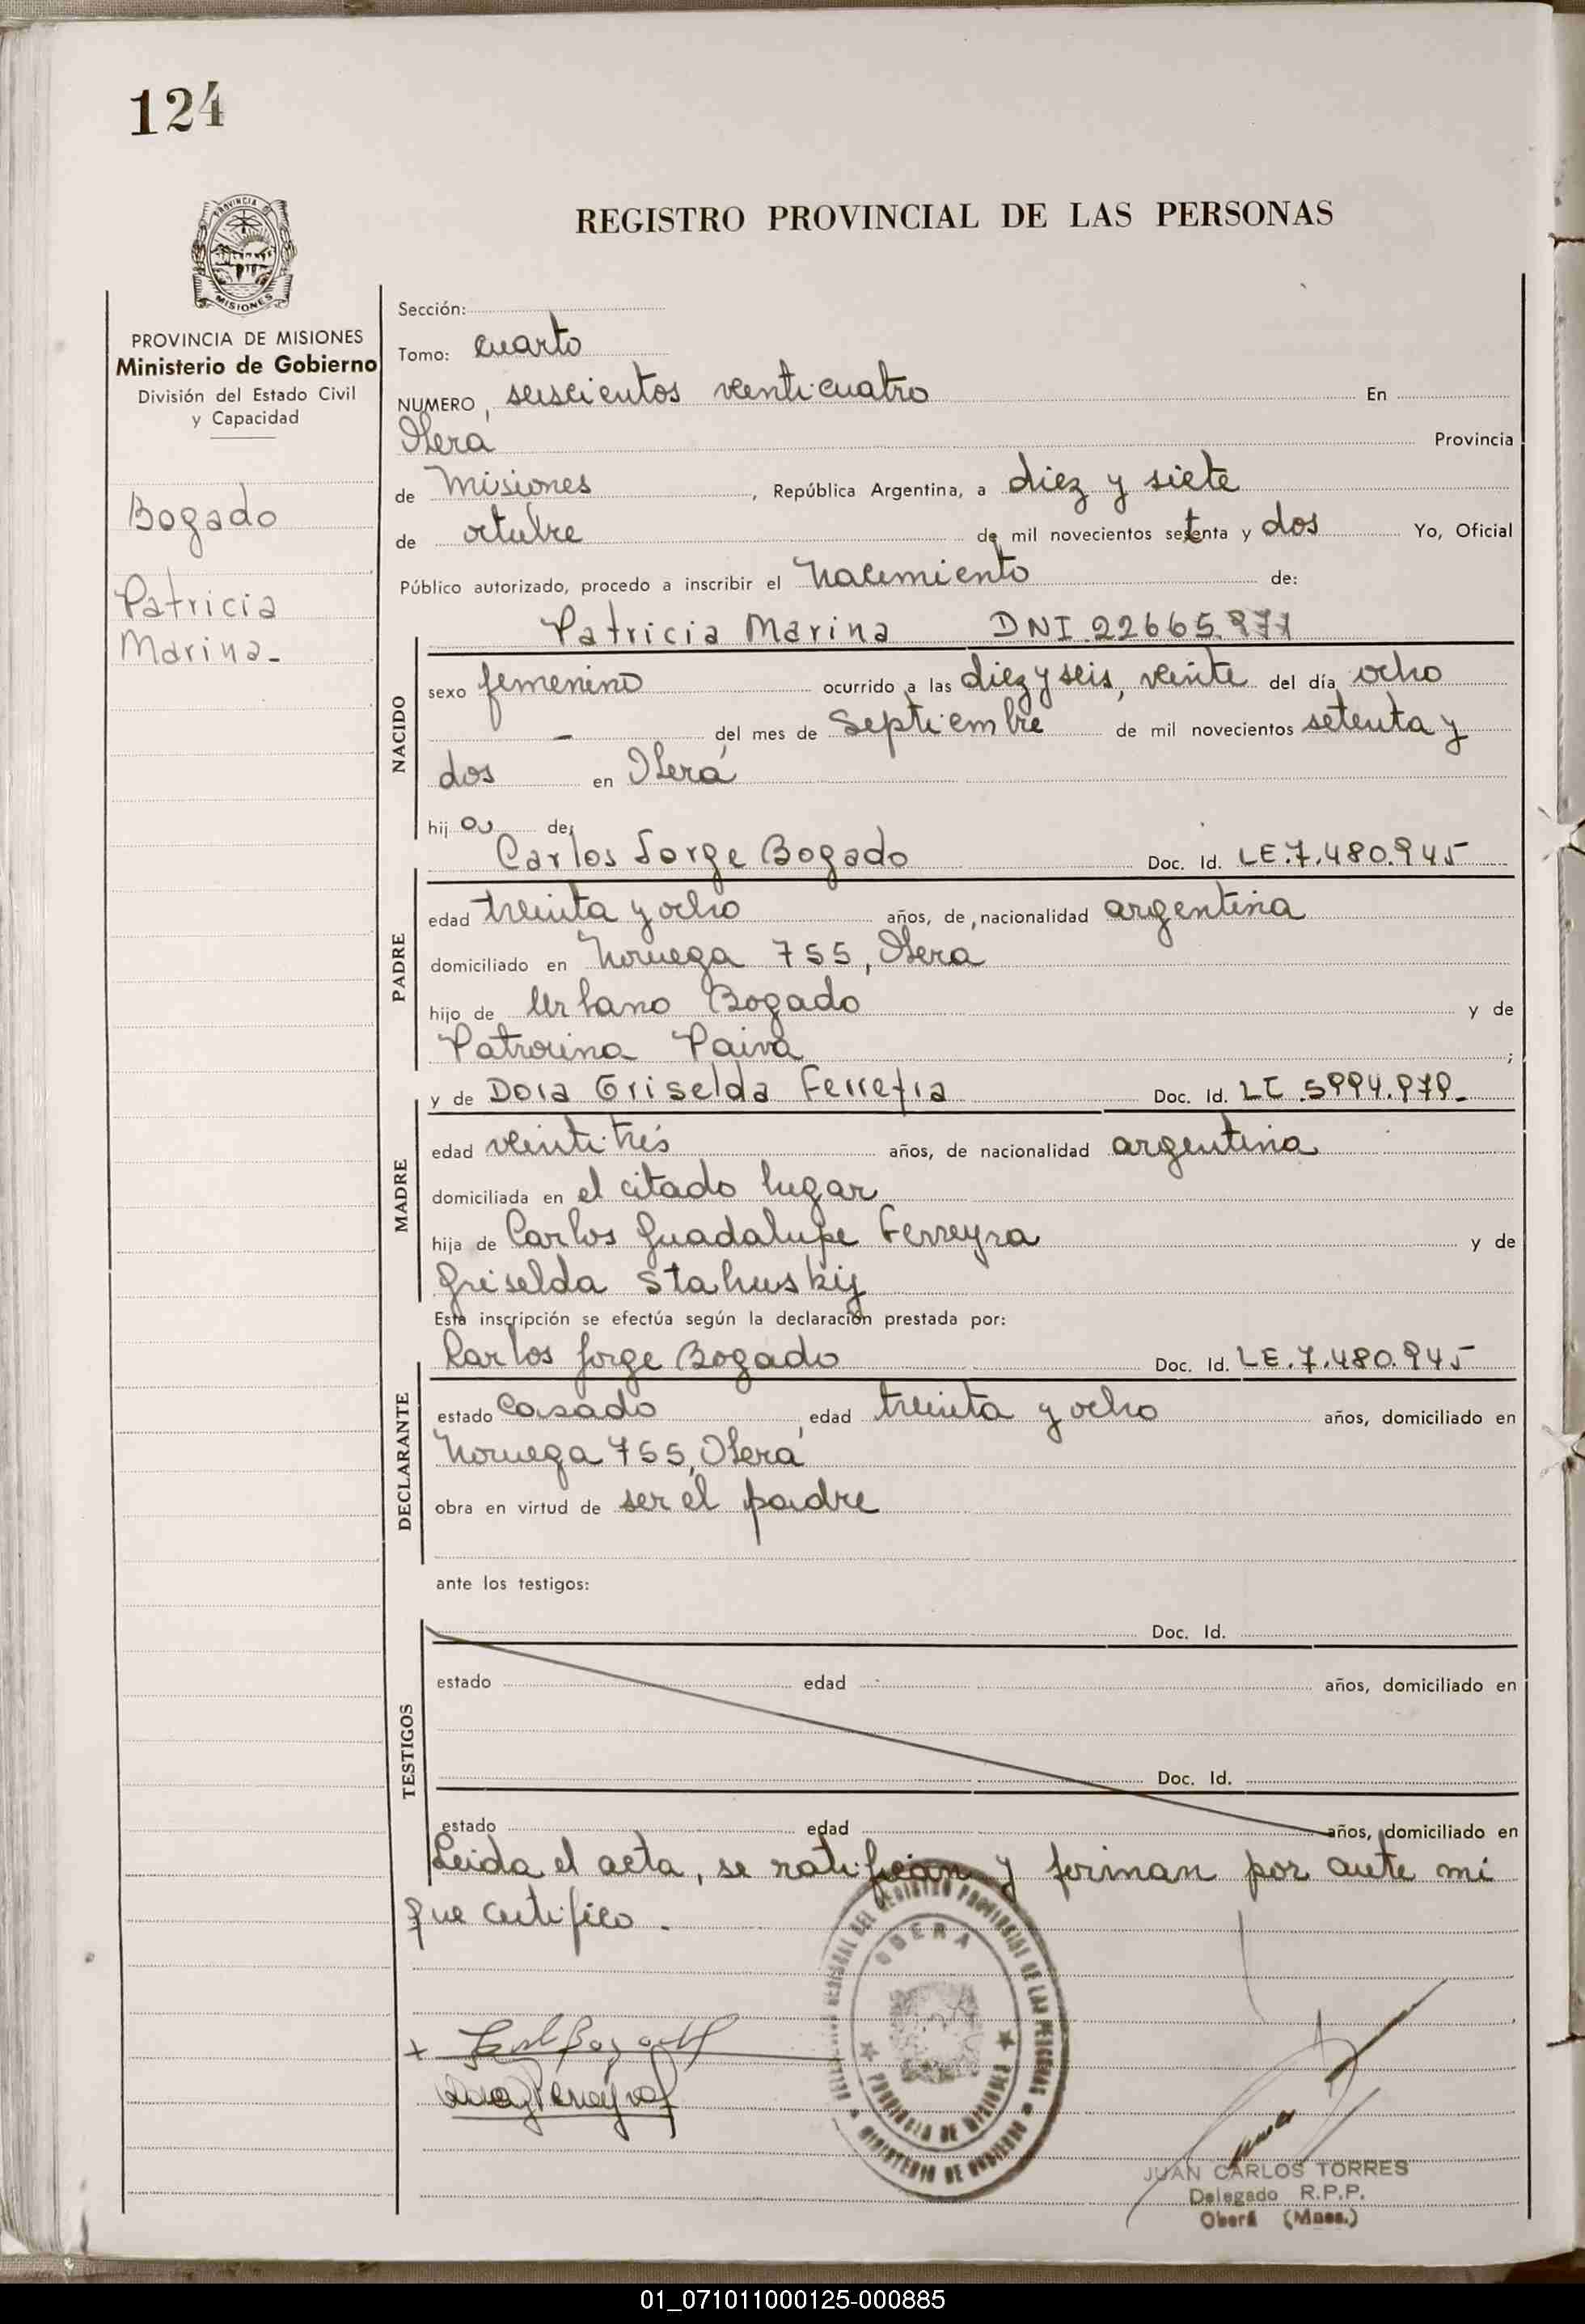 124
PROVINCIA
MISIONES
REGISTRO PROVINCIAL DE LAS PERSONAS
PROVINCIA DE MISIONES
Ministerio de Gobierno
División del Estado Civil
y Capacidad
Bogado
Patricia
Marina-
Sección:
Tomo: cuarto
NUMERO, seiscientos veinticuatro En
Oberá Provincia
de Misiones, República Argentina, a diez y siete
de octubre de mil novecientos setenta y dos Yo, Oficial
Público autorizado, procedo a inscribir el nacimiento de:
Patricia Marina DNI 22665
NACIDO
sexo femenino ocurrido a las diez y seis, veinte del día ocho
- del mes de septiembre de mil novecientos setenta y
dos en Oberá
hija de:
Carlos Jorge Bogado Doc. Id. LE.7.480.945
PADRE
edad treinta y ocho años, de nacionalidad argentina
domiciliado en Noruega 755, Obera
hijo de Urbano Bogado y de
Paiva ;
y de Dora Griselda Ferreyra Doc. Id. LC 5994.979-
MADRE
edad veintitrés años, de nacionalidad argentina
domiciliada en el citado lugar
hija de Carlos Guadalupe Ferreyra y de
Griselda Stahuskij
Esta inscripción se efectúa según la declaración prestada por:
Carlos Jorge Bogado Doc. Id. LE.7.480.945
DECLARANTE
estado casado, edad treinta y ocho años, domiciliado en
Noruega 755, Oberá
obra en virtud de ser el padre
ante los testigos:
TESTIGOS
Doc. Id.
estado edad años, domiciliado en
Doc. Id.
estado edad años, domiciliado en
Leida el acta, se ratifican y firman por ante mi
que certifico.
REGIONAL DEL REGISTRO PROVINCIAL DE LAS PERSONAS
OBERA
PROVINCIA DE MISIONES
MINISTERIO DE GOBIERNO
JUAN CARLOS TORRES
Delegado R.P.P.
Oberá (Mnes.)
01_071011000125-000885